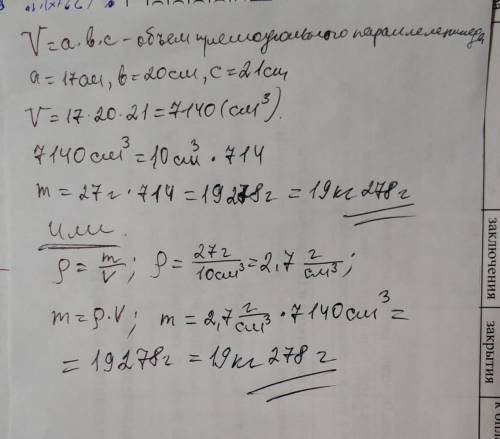 V=a·b·c - объем прямоугольного параллелепипеда
a=17см, b=20см, c=21см
V=17·20·21=7140(см³).
7140см³=10см³·714
m=27г·714=19278г=19кг 278г
или.
ρ=m/V; ρ=27г/10см³=2,7 г/см³;
m=ρ·V; m=2,7 г/см³·7140см³=
=19278г=19кг 278 г
заключения
закрытия